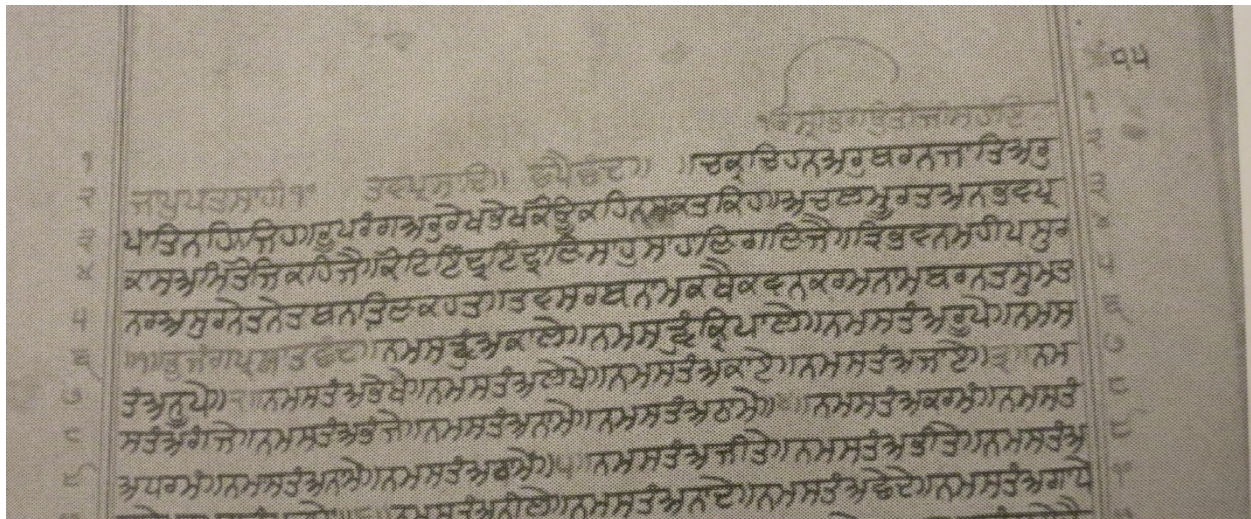 ੧੫
ੴਸ੍ਰੀਭਗਉਤੀਜੀਸਹਾਇ
ਜਾਪੁਪਤਸਾਹੀ੧੦ ਤਵਪ੍ਰਸਾਦਿ॥ ਛਪੈਛੰਦ॥ ॥ਚਕ੍ਰਚਿਹਨਅਰੁਬਰਨਜਾਤਿਅਰੁ
ਪਾਤਿਨਹਿਨਜਿਹ॥ਰੂਪਰੰਗਅਰੁਰੇਖਭੇਖਕੋਊਕਹਿਨਸਕਤਕਿਹ॥ਅਚਲਮੂਰਤਅਨਭਵਪ੍ਰ
ਕਾਸਅਮਿਤੋਜਿਕਹਿਜੈ॥ਕੋਟਿਇੰਦ੍ਰਇੰਦ੍ਰਾਣਿਸਾਹੁਸਾਹਾਣਿਗਣਿਜੈ॥ਤ੍ਰਿਭਵਨਮਹੀਪਸੁਰ
ਨਰਅਸੁਰਨੇਤਨੇਤਬਨਤ੍ਰਿਣਕਹਤ॥ਤਵਸਰਬਨਾਮਕਥੈਕਵਨਕਰਮਨਾਮਬਰਨਤਸੁਮਤ
॥੧॥ਭੁਜੰਗਪ੍ਰਯਾਤਛੰਦ॥ਨਮਸਤ੍ਵੰਅਕਾਲੇ॥ਨਮਸਤ੍ਵੰਕ੍ਰਿਪਾਲੇ॥ਨਮਸਤੰਅਰੂਪੇ॥ਨਮਸ
ਤੰਅਨੂਪੇ॥੨॥ਨਮਸਤੰਅਭੇਖੇ॥ਨਮਸਤੰਅਲੇਖੇ॥ਨਮਸਤੰਅਕਾਏ॥ਨਮਸਤੰਅਜਾਏ॥੩॥ਨਮ
ਸਤੰਅਗੰਜੇ॥ਨਮਸਤੰਅਭੰਜੇ॥ਨਮਸਤੰਅਨਾਮੇ॥ਨਮਸਤੰਅਠਾਮੇ॥੪॥ਨਮਸਤੰਅਕਰਮੰ॥ਨਮਸਤੰ
ਅਧਰਮੰ॥ਨਮਸਤੰਅਨਾਮੰ॥ਨਮਸਤੰਅਧਾਮੰ॥੫॥ਨਮਸਤੰਅਜੀਤੇ॥ਨਮਸਤੰਅਭੀਤੇ॥ਨਮਸਤੰਅ
ਨਮਸਤੰਅਨੀਲੇ॥ਨਮਸਤੰਅਨਾਦੇ॥ਨਮਸਤੰਅਛੇਦੇ॥ਨਮਸਤੰਅਗਾਧੇ